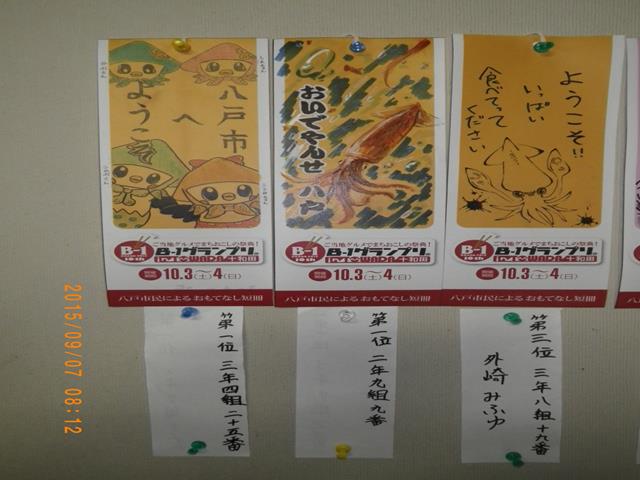 八戸市
へ
ようこそ
ご当地グルメでまちおこしの祭典!
B-1
10th
B-1グランプリ
in 十和田
開催期間 10.3(土)〜4(日)
八戸市民によるおもてなし短冊
第一位 三年四組二十五番
おいでやんせ 八戸
ご当地グルメでまちおこしの祭典!
B-1
10th
B-1グランプリ
in 十和田
開催期間 10.3(土)〜4(日)
八戸市民によるおもてなし短冊
第一位 二年九組九番
ようこそ!!
いっぱい
食べてって
ください
ご当地グルメでまちおこしの祭典!
B-1
10th
B-1グランプリ
in 十和田
開催期間 10.3(土)〜4(日)
八戸市民によるおもてなし短冊
第三位 三年八組十九番
外崎 みふゆ
2015/09/07 08:12